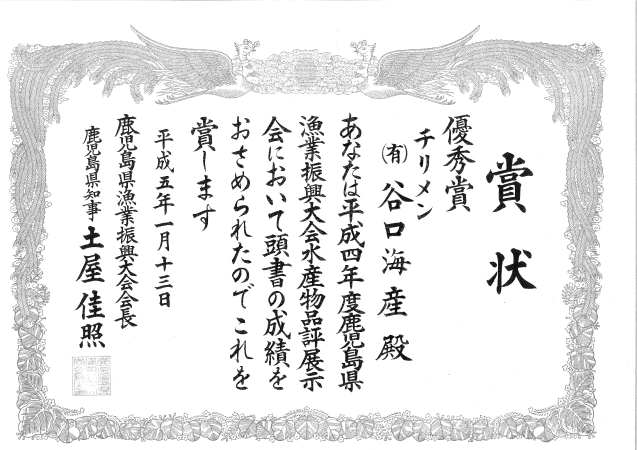 賞状
優秀賞
チリメン
(有)谷口海産殿
あなたは平成四年度鹿児島県
漁業振興大会水産物品評展示
会において頭書の成績を
おさめられたのでこれを
賞します
平成五年一月十三日
鹿児島県漁業振興大会会長
鹿児島県知事 土屋佳照